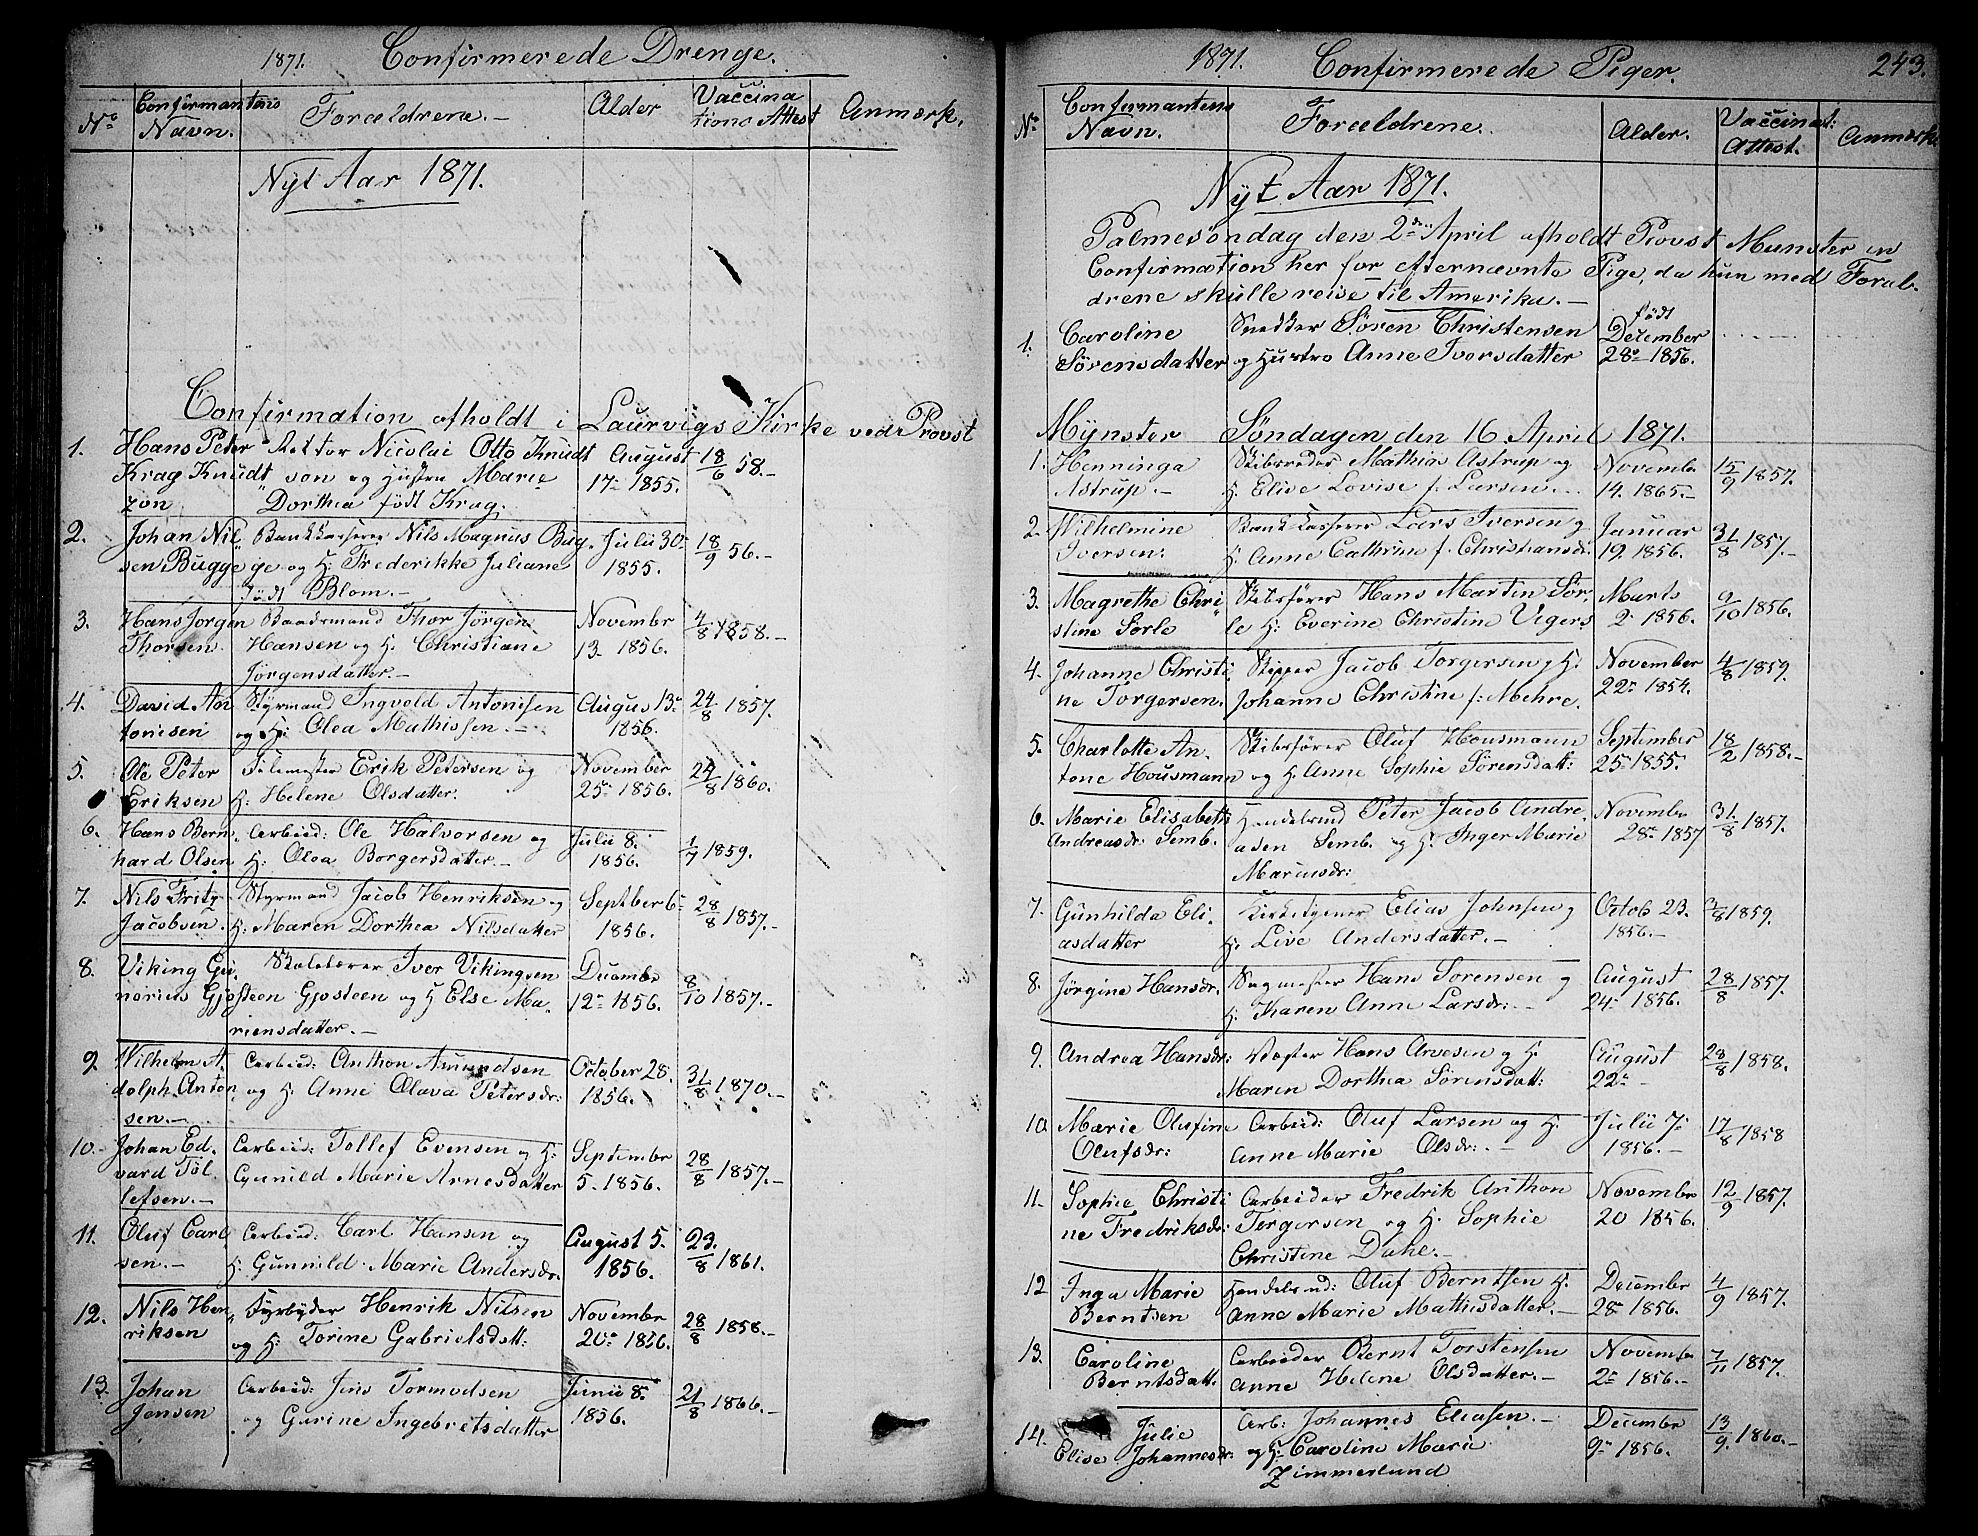 1871. Confirmerede Drenge.
No Confirmantens Navn. Forældrene.- Alder Vaccinations Attest Anmærk.
Nyt Aar 1871.
Confirmation afholdt i Laurvigs Kirke ved Provst
1. Hans Peter Rektor Nicolai Otto Knudt August 18/6 58.-
Krag Knudt son og Hustru Marie 17- 1855.
zon Dorthea født Krag.
2. Johan Nil Bankkasserer Nils Magnus Bug- Julii 30- 18/9 56.-
sen Bugge ge og H: Frederikke Juliane 1855.
født Blom.-
3. Hans Jorgen Baadsmand Thor Jørgen November 4/8 1858.-
Thorsen Hansen og H. Christiane 13- 1856.
Jørgensdatter.-
4. David An Styrmand Ingvold Antonisen Augus 13- 24/8 1857.
tonisen og H: Olea Mathissen.- 1856.
5. Ole Peter Erik Petersen og November 24/8 1860.
Eriksen H: Helene Olsdatter. 25- 1856.
6. Hans Bern- Arbeid: Ole Halvorsen og Julii 8. 1/7 1859.
hard Olsen H. Olea Borgersdatter.- 1856.
7. Nils Fritz Styrmand Jacob Henriksen og Septber 6- 28/8 1857.-
Jacobsen. H: Maren Dorthea Nilsdatter 1856.
8. Viking Gu- Skolelærer Iver Vikingsen Decembr 8/10 1857.-
narius Gjøsteen Gjosteen og H Else Ma- 12- 1856.
riensdatter.-
9. Wilhelm A- Arbeid: Anthon Amundsen October 28. 31/8 1870.-
dolph Anton og H. Anne Olava Petersdr: 1856.
sen.-
10.- Johan Ed- Arbeid: Tollef Evensen og H: Septembr 28/8 1857.-
vard Tol- Gunild Marie Arnesdatter 5- 1856.
lefsen.-
11. Oluf Carl Arbeid: Carl Hansen og August 5. 23/8 1861.
sen.- H. Gunnild Marie Andersdr. 1856.
12. Nils Hen- Fyrbyder Henrik Nilsen November 28/8 1858.-
riksen og H: Torine Gabrielsdatt: 20- 1856.
13. Johan Arbeid: Jens Tormodsen Junii 8- 21/8 1866.-
Jensen og Gurine Ingebretsdatter 1856.
1871. Confirmerede Piger. 243.
No Confirmantens Navn. Forældrene. Alder. Vaccinat: Attest. Anmærk
Nyt Aar 1871.
Palmesøndag den 2den April afholdt Provst Munster en
Confirmation her for efternævnte Pige, da hun med Foræl-
drene skulle reise til Amerika.-
1. Caroline Snedker Søren Christensen født December
Sørensdatter og Hustro Anne Iversdatter 28- 1856.
Mynster Søndagen den 16 April 1871.
1. Henninga Skibsreder Mathias Astrup og Novembr 15/9 1857.
Astrup.- H. Elise Lovise f. Larsen.- 14. 1865.-
2. Wilhelmine Bankkasserer Lars Iversen og Januar 31/8 1857.-
Iversen. H. Anne Cathrine f. Christiansdr. 19. 1856.
3. Magrethe Chri Skibsfører Hans Martin Sør- Marts 9/10 1856.
stine Sørle le H: Everine Christine Vigers 2- 1856.
4. Johanne Christi Skipper Jacob Torgersen og H: November 4/8 1859.
ne Torgersen. Johanne Christine f: Mehre. 22- 1854.
5. Charlotte An- Skibsfører Oluf Housmann September 18/2 1858.-
tone Housmann og H. Anne Sophie Sørensdatt: 25- 1855.
6. Marie Elisabeth Handelsmd Peter Jacob Andre Novembr 31/8 1857.
Andreasdr: Semb. asen Semb. og H. Inger Marie 28- 1857
Mariusdr:
7. Gunhilda Eli- Kirketjener Elias Johnsen og Octob 23. /8 1859.
asdatter H. Live Andersdatter.- 1856.-
8. Jørgine Hansdr. Sagmester Hans Sorensen og August 28/8 1857.
H. Karen Anne Larsdr:- 24- 1856.
9. Andrea Hansdr: Hans Arvesen og H. August 28/8 1858.
Maren Dorthea Sørensdatt: 22-
10. Marie Olufine Arbeid: Oluf Larsen og H. Julii 7- 17/8 1858
Olufsdr: Anne Marie Olsdr:- 1856.-
11. Sophie Christi Arbeider Fredrik Anthon Novembr 12/9 1857.
ne Fredriksdr: Torgersen og H. Sophie 20 1856.
Christine Dahl.-
12 Inga Marie Handelsmd: Oluf Berntsen H. Decembr 4/9 1857.
Berntsen Anne Marie Mathisdatter.- 28- 1856.
13. Caroline Arbeider Bernt Torstensen Novembr 7/11 1857.
Berntsdatt. Anne Helene Olsdatter.- 2- 1856.-
14. Julie Arb: Johannes Eliasen.- Decembr 13/9 1860.-
Elise Johannesdr: og H: Caroline Marie 9- 1856.
Zimmerlund